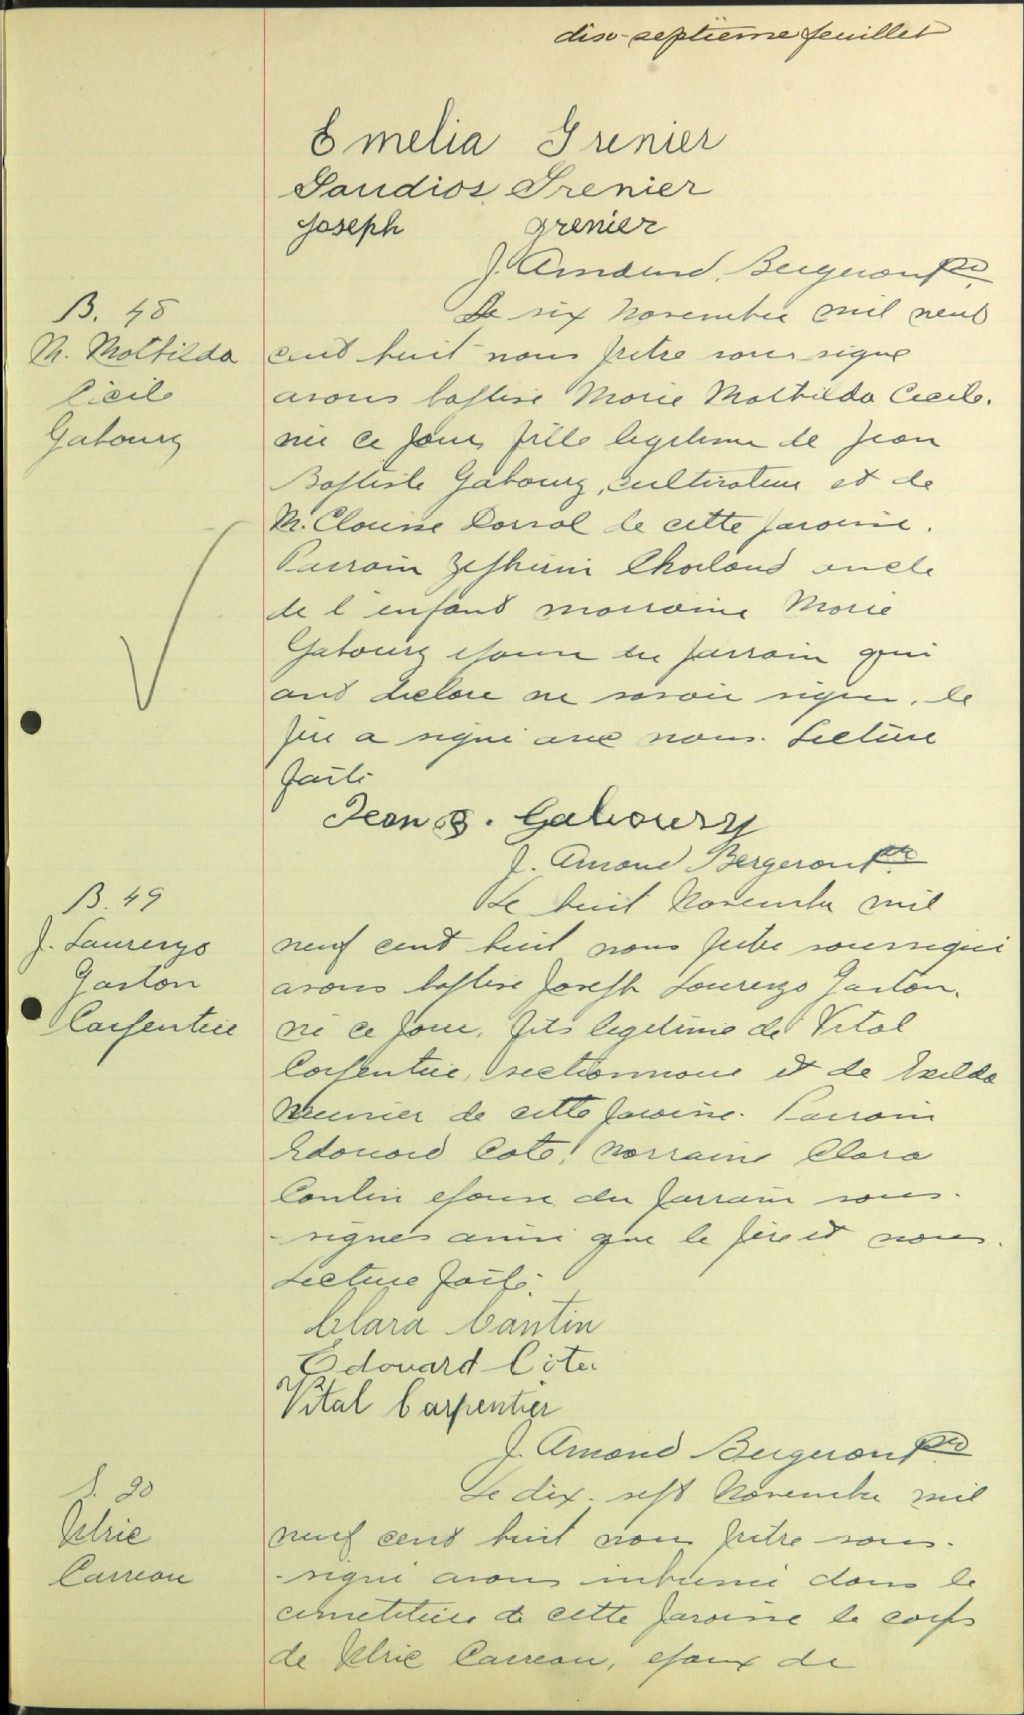 dix-septième feuillet
Emelia Grenier
Gaudios Grenier
Joseph grenier
J. Armand Bergeron ptre
B. 48
M. Mathilda
Cécile
Gaboury
Le six Novembre mil neuf
cent huit nous prêtre soussigné
avons baptisé Marie Mathilda Cécile,
née ce jour, fille légitime de Jean
Baptiste Gaboury, cultivateur et de
M. Clarisse Dorval de cette paroisse.
Parrain Zéphirin Charland oncle
de l'enfant marraine Marie
Gaboury épouse du parrain qui
ont déclaré ne savoir signer. le
père a signé avec nous. Lecture
faite
Jean B. Gaboury
J. Armand Bergeron ptre
B. 49
J. Laurenzo
Gaston
Carpentier
Le huit Novembre mil
neuf cent huit nous prêtre soussigné
avons baptisé Joseph Laurenzo Gaston,
né ce jour, fils légitime de Vital
Carpentier, sectionnaire et de Exilda
Meunier de cette paroisse. Parrain
Edouard Coté, marraine Clara
Cantin épouse du parrain sous-
-signés ainsi que le père et nous.
Lecture faite.
Clara Cantin
Edouard Côté
Vital Carpentier
J. Armand Bergeron ptre
S. 20
Ulric
Carreau
Le dix-sept Novembre mil
neuf cent huit nous prêtre sous-
-signé avons inhumé dans le
cimetière de cette paroisse le corps
de Ulric Carreau, époux de